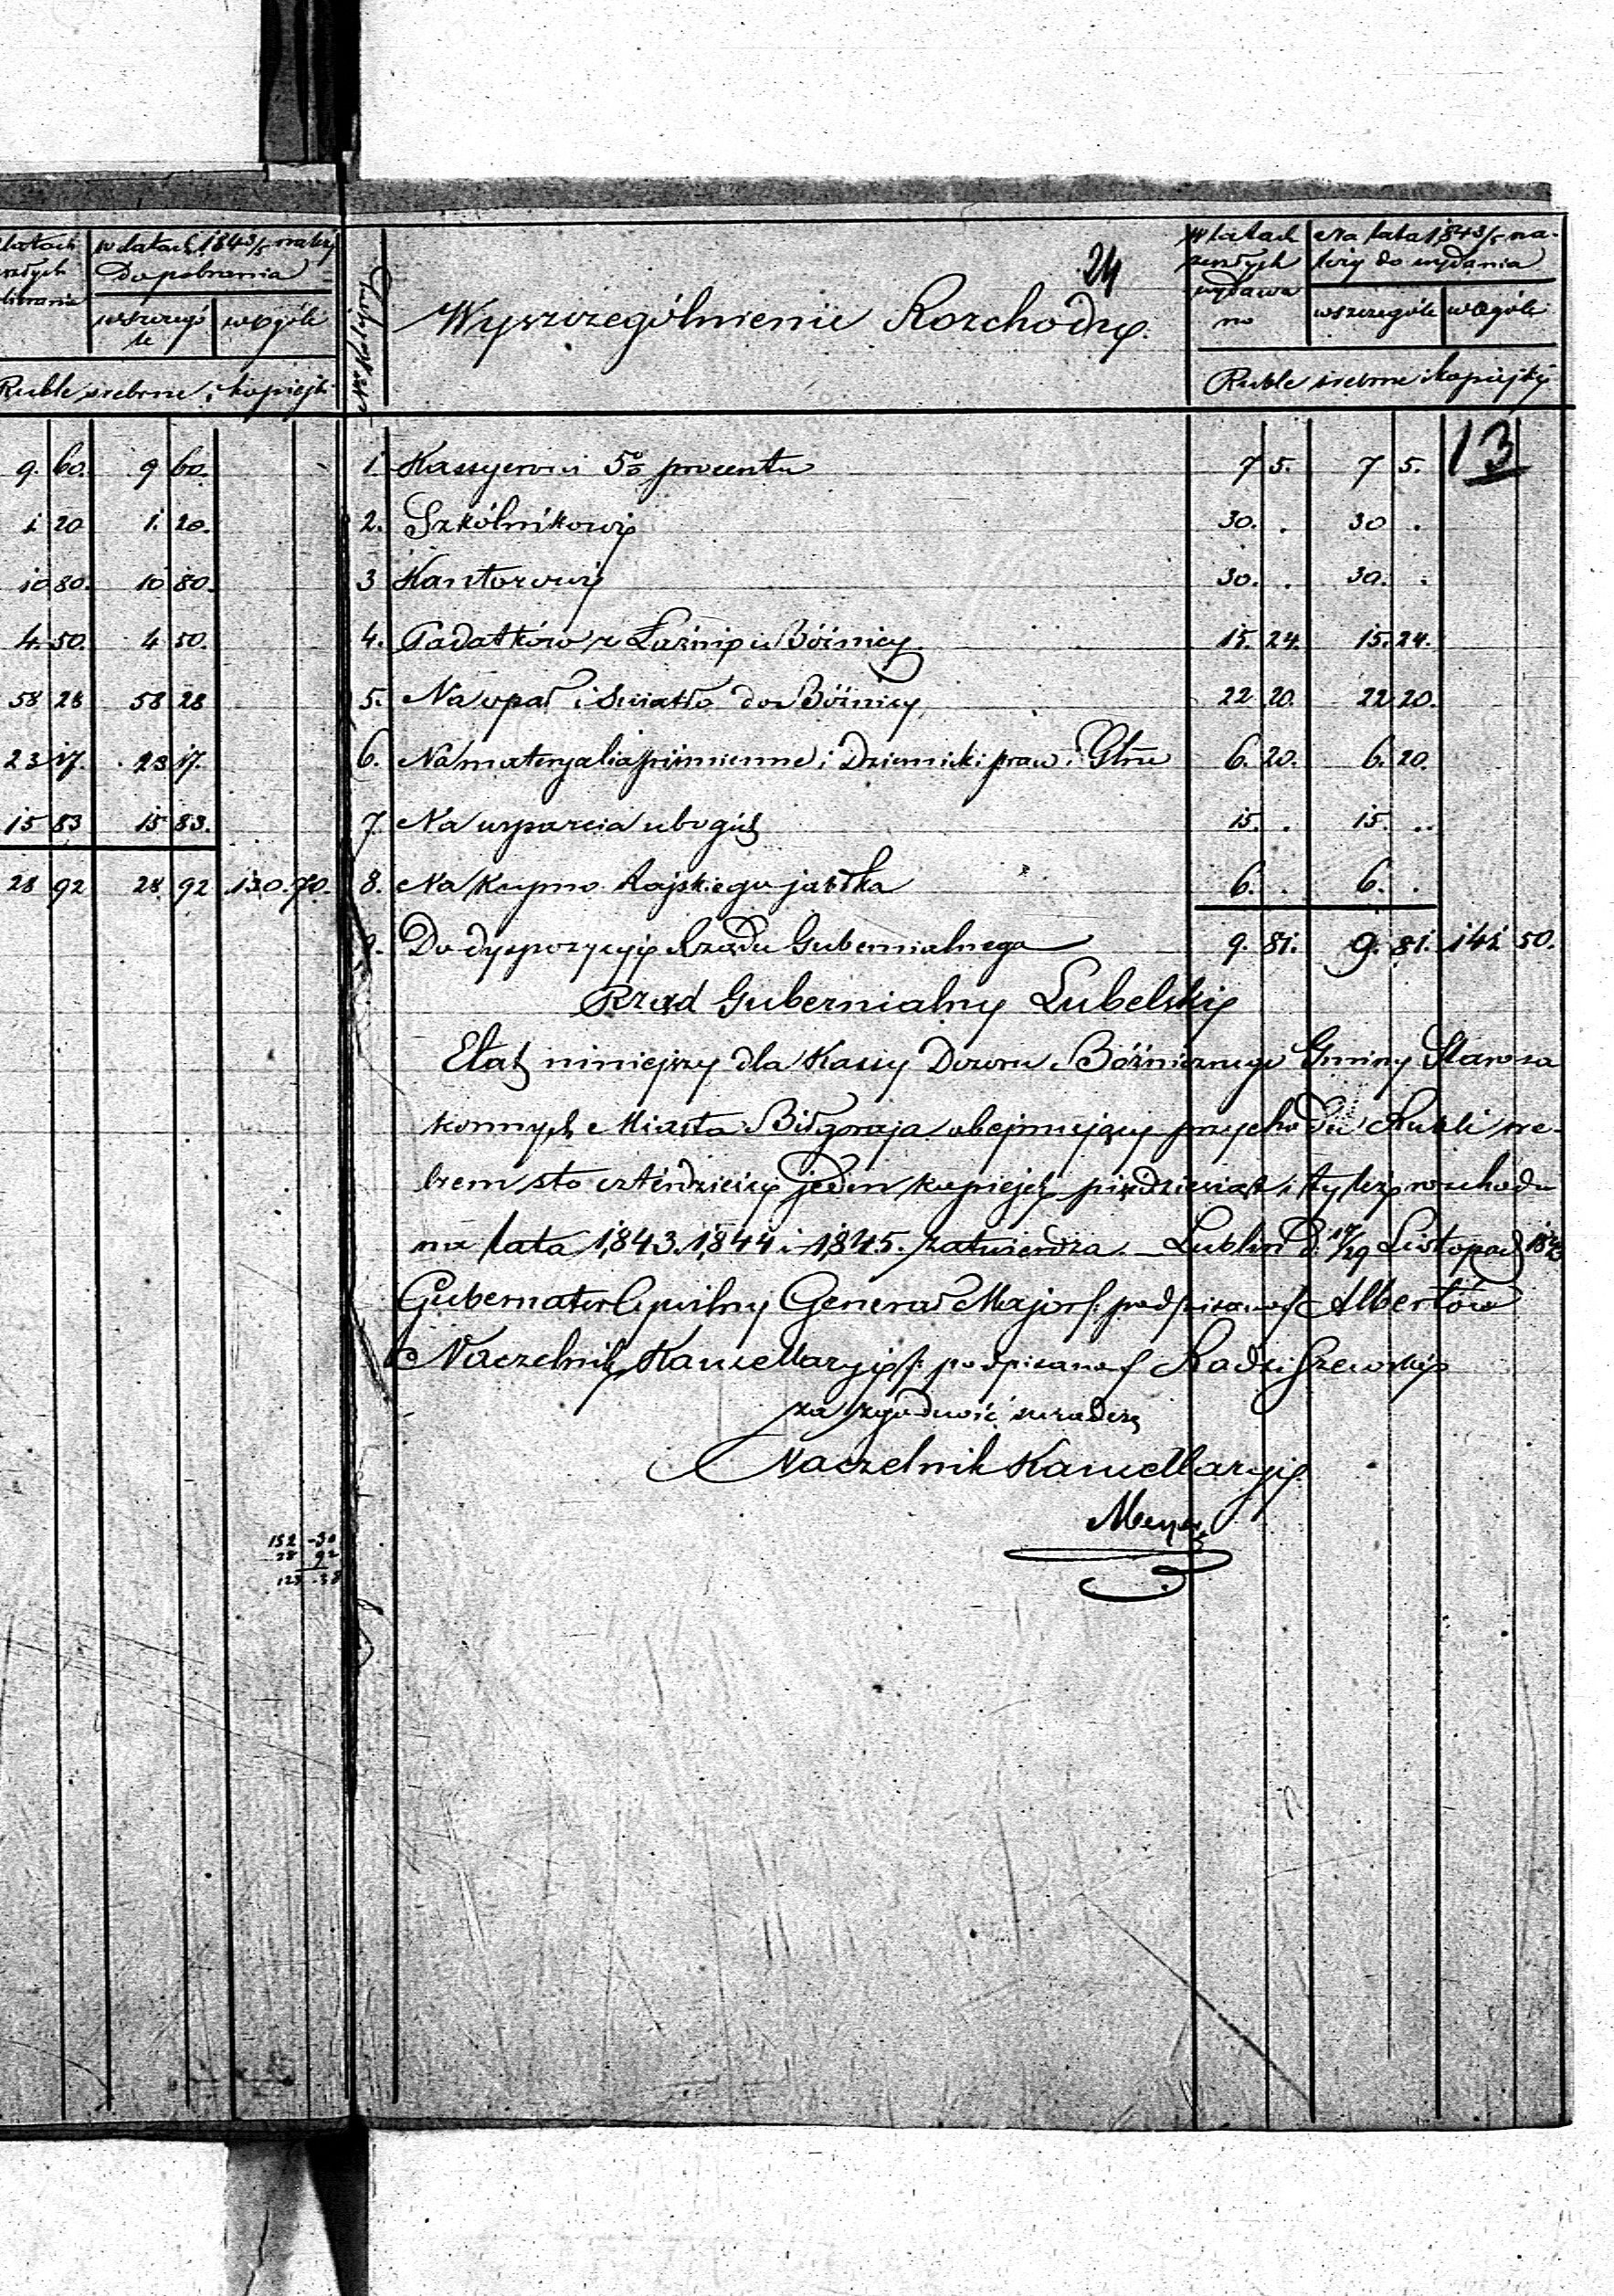 latach w latach 1843/5 należy
Do pobrania
w szczegó
le
w ogóle
Ruble srebrne i kopiejki
9. 60. 9 60.
1 20 1. 20.
10 80. 10 80.
4. 50. 4 50.
58 28 58 28
23 17. 23 17.
15 83 15 83.
28 92 28 92 130. 70.
152 - 30
28 92
123 - 38
24
Wyszczególnienie Rozchody.
W latach
zeszłych
wydawa
no
Na lata 1843/5 na-
leży do wydania
w szczególe w ogóle
Ruble srebrne i kopiejki
13
1. Kassyerowi 5% procentu 7 5. 7 5.
2. Szkólnikowi 30. . 30 .
3 Kantorowi 30. . 30. .
4. Podatków z Łaźni i Bóźnicy 15. 24. 15. 24.
5. Na opał i światło do Bóźnicy 22 20. 22 20.
6. Na materyalia piśmienne i Dzienniki praw i Gbru 6. 20. 6. 20.
7. Na wsparcia ubogich 15. . 15. ..
8. Na kupno Rajskiego jabłka 6. . 6. .
9. Do dyspozycyi Rządu Gubernialnego 9. 81. 9. 81. 141 50.
Rząd Gubernialny Lubelski
Etat niniejszy dla Kassy Dozoru Bóźniczego Gminy Staroza
konnych Miasta Biłgoraja obejmujący przychodu Rubli sre-
brem sto czterdzieści jeden kopiejek pięćdziesiąt i tyleż rozchodu
na lata 1843. 1844 i 1845. zatwierdza. Lublin d. 17/29 Listopad
Gubernator Cywilny Generał Major /: podpisano / Albertów
Naczelnik Kancellaryi /: podpisano / Radziszewski
za zgodność świadczę
Naczelnik Kancellaryi
Meyer